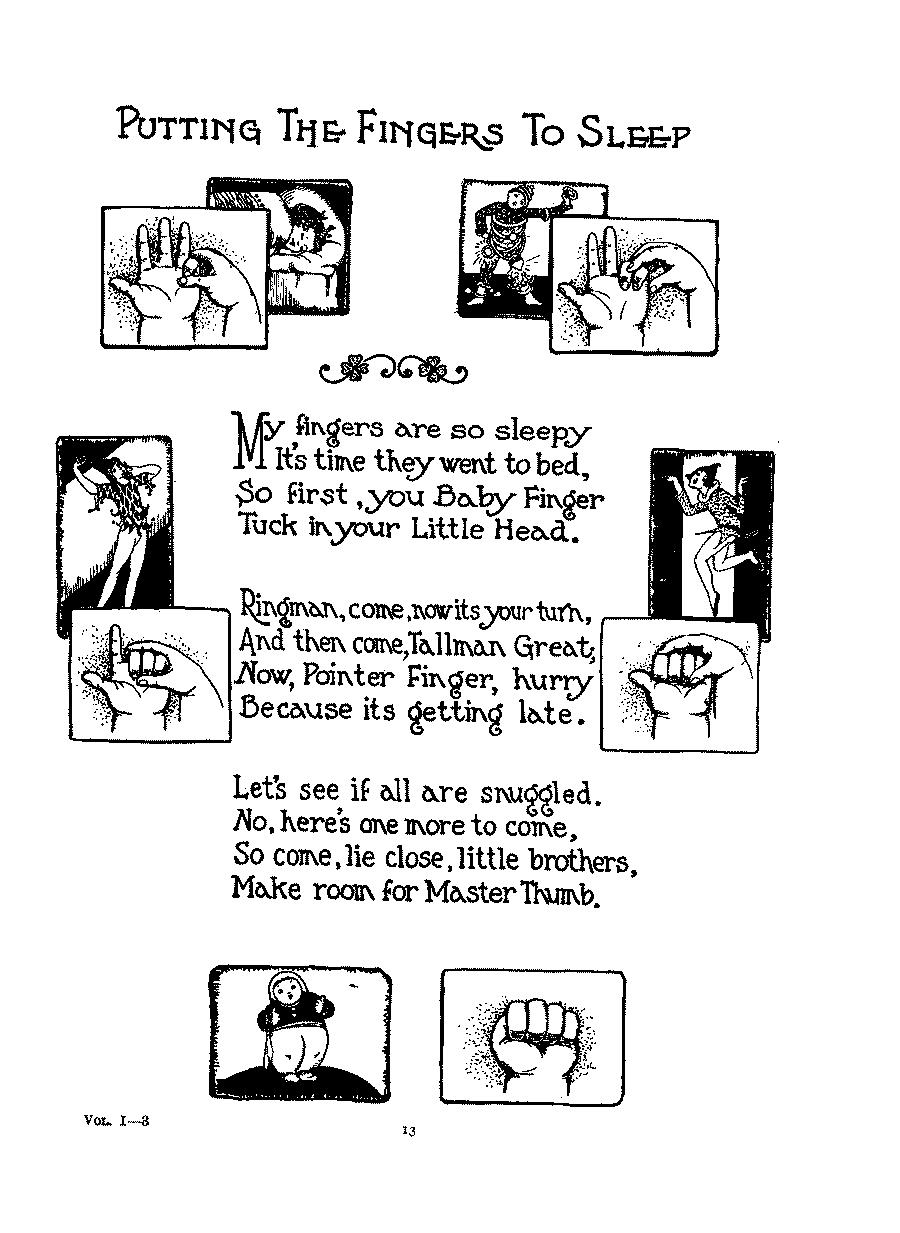 PUTTING THE FINGERS TO SLEEP
My fingers are so sleepy
It's time they went to bed,
So first, you Baby Finger
Tuck in your Little Head.
Ringman, come, now its your turn,
And then come, Tallman Great;
Now, Pointer Finger, hurry
Because its getting late.
Let's see if all are snuggled.
No, here's one more to come,
So come, lie close, little brothers,
Make room for Master Thumb.
VOL. I—3
13